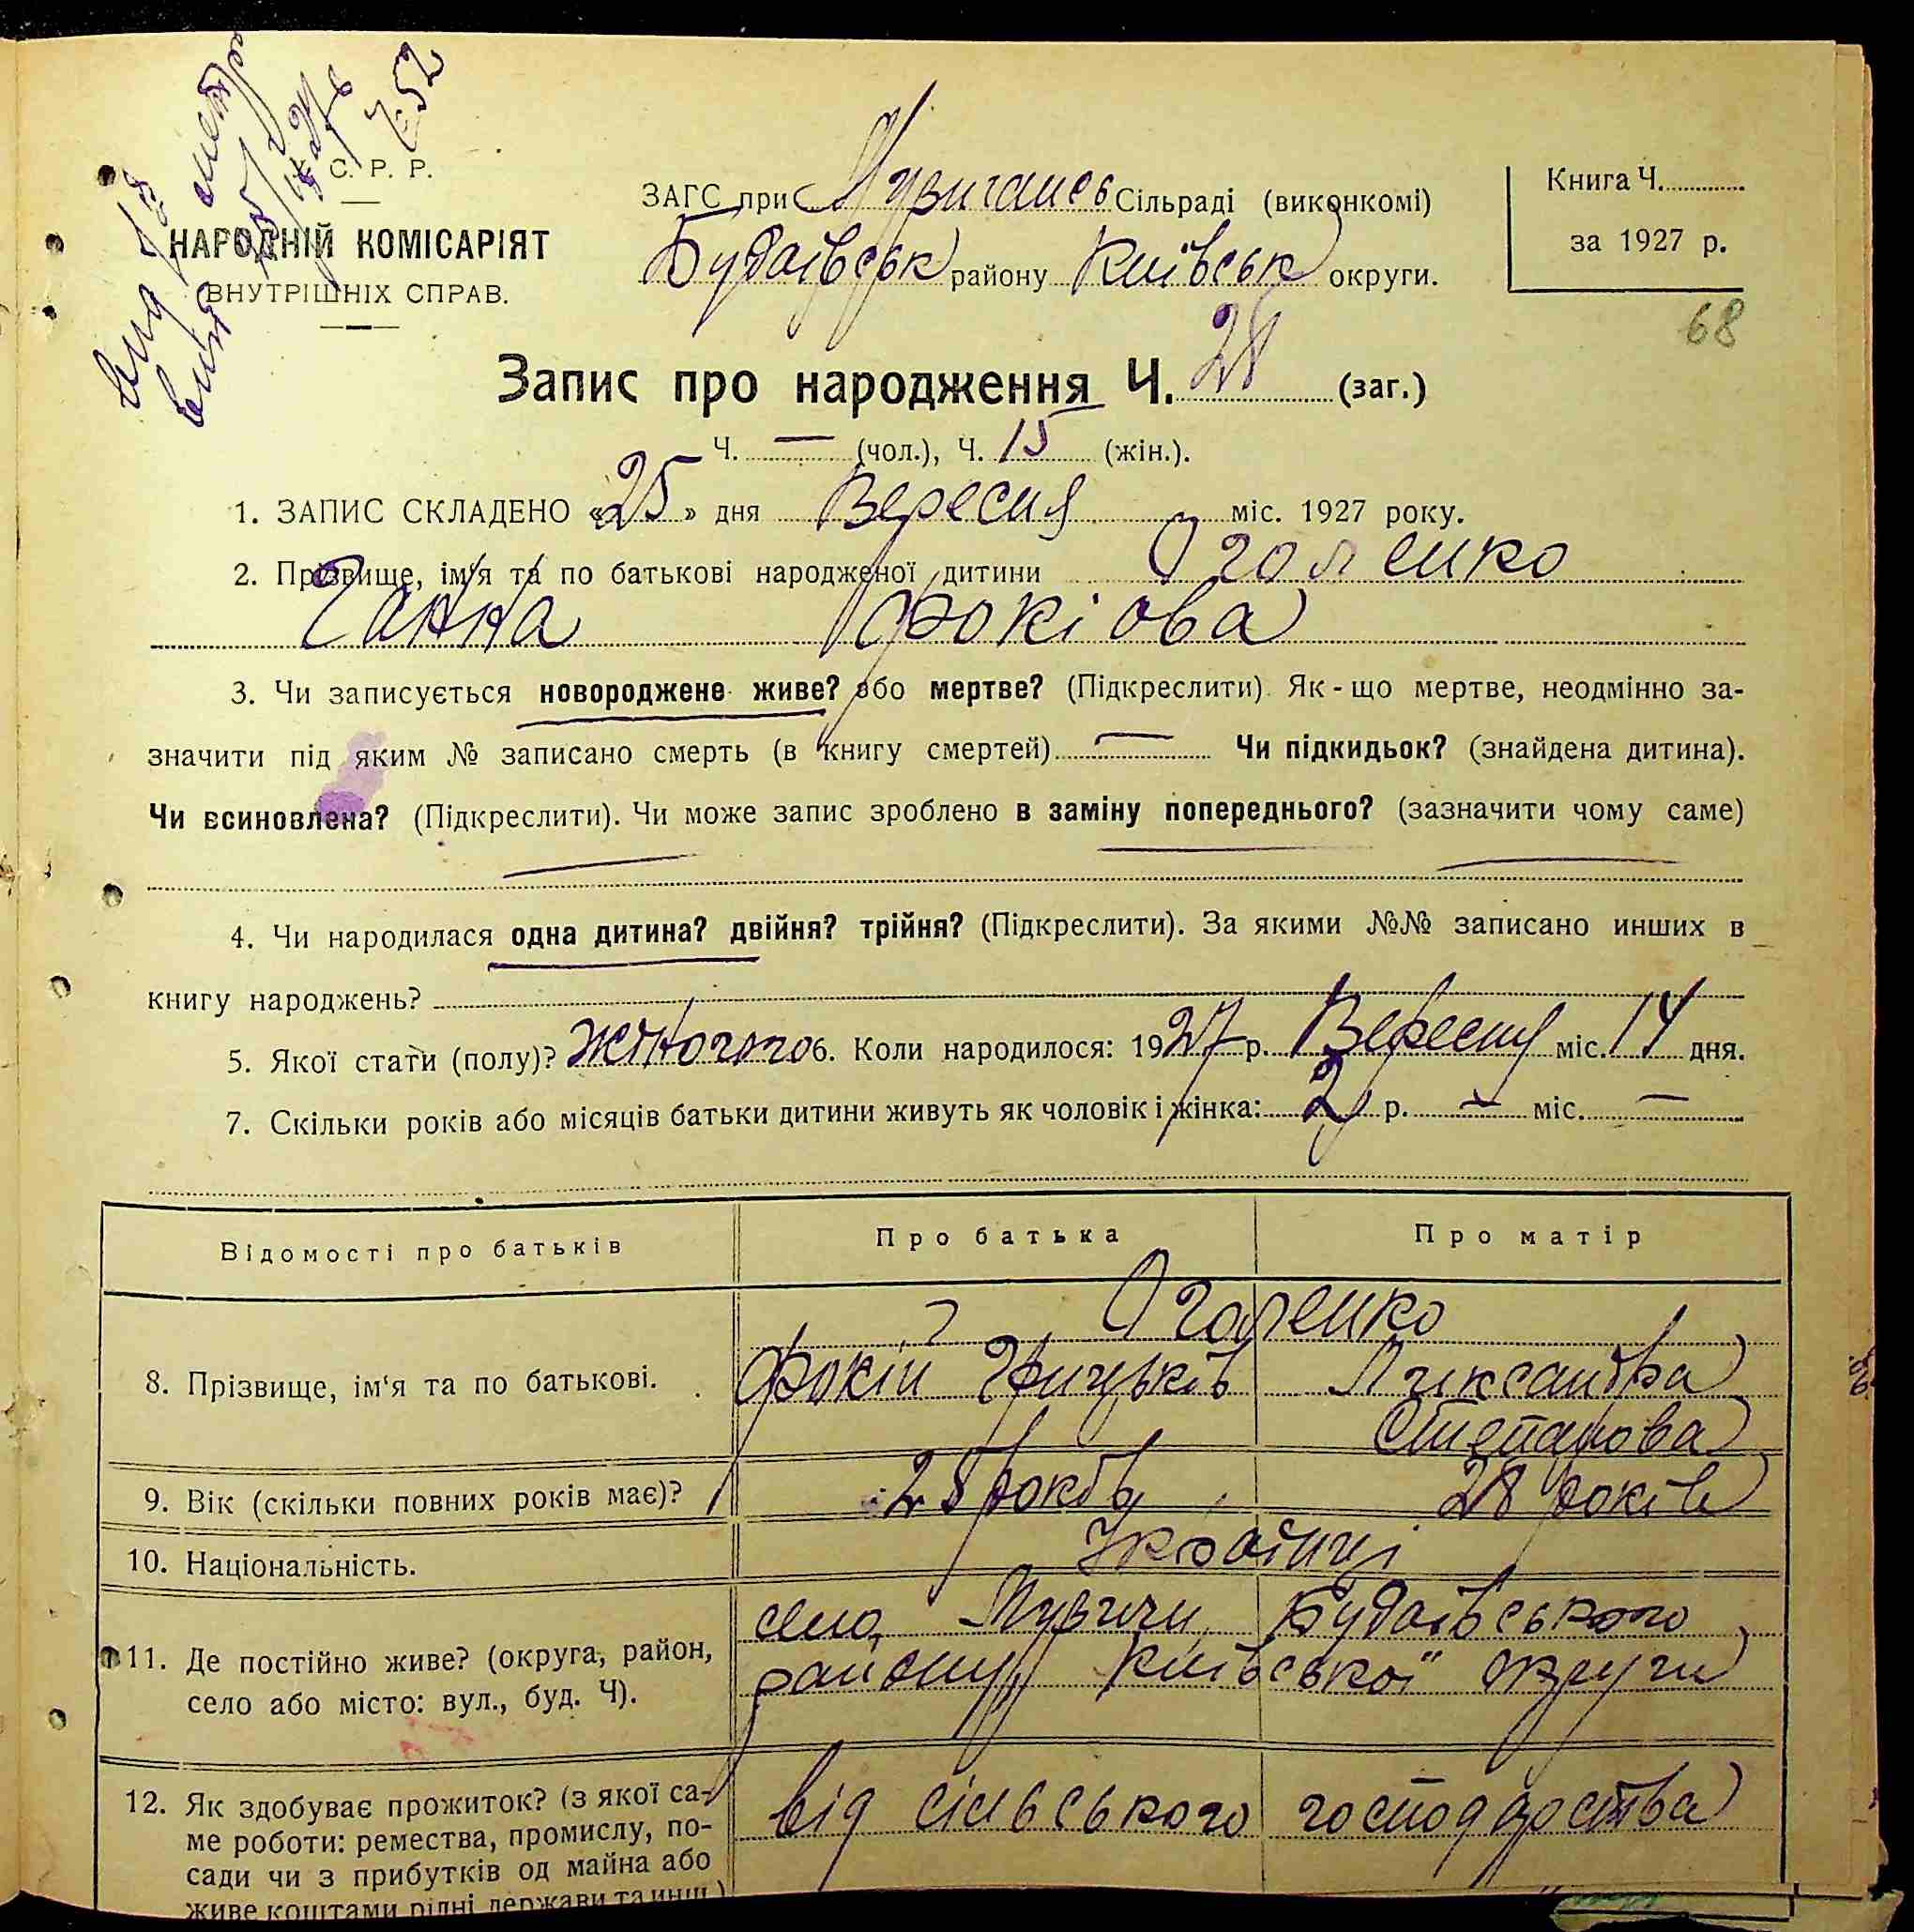 С. Р. Р.
НАРОДНІЙ КОМІСАРІЯТ
ВНУТРІШНІХ СПРАВ.
ЗАГС при Музичансь Сільраді (виконкомі)
Будаївськ району Київськ округи.
Книга Ч.
за 1927 р.
68
Запис про народження Ч. 28 (заг.)
Ч. — (чол.), Ч. 15 (жін.).
1. ЗАПИС СКЛАДЕНО «25» дня Вересня міс. 1927 року.
2. Прізвище, ім'я та по батькові народженої дитини Оголенко
Ганна Фокіова
3. Чи записується новороджене живе? або мертве? (Підкреслити) Як-що мертве, неодмінно за-
значити під яким № записано смерть (в книгу смертей) — Чи підкидьок? (знайдена дитина).
Чи всиновлена? (Підкреслити). Чи може запис зроблено в заміну попереднього? (зазначити чому саме)
4. Чи народилася одна дитина? двійня? трійня? (Підкреслити). За якими №№ записано инших в
книгу народжень?
5. Якої стати (полу)? жіночого 6. Коли народилося: 1927 р. Вересня міс. 14 дня.
7. Скільки років або місяців батьки дитини живуть як чоловік і жінка: 2 р. — міс. —
Відомості про батьків Про батька Про матір
Оголенко
8. Прізвище, ім'я та по батькові. Фокій Грицьків Лександра
Степанова
9. Вік (скільки повних років має)? 28 років 28 років
10. Національність. Українці
11. Де постійно живе? (округа, район,
село або місто: вул., буд. Ч).
село Музичи Будаївського
району Київської округи
12. Як здобуває прожиток? (з якої са-
ме роботи: ремества, промислу, по-
сади чи з прибутків од майна або
живе коштами рідні держави та инш.)
від сільського господарства